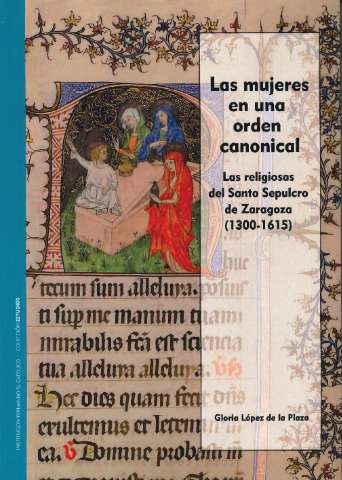 Las mujeres
en una
orden
canonical
Las religiosas
del Santo Sepulcro
de Zaragoza
(1300-1615)
tecum sum alleluya. posuisti
ti super me manum tuam
mirabilis
est
tua alleluya alleluya.
Hec dies quam fecit
exultemus et letem
in ea. Domine probasti m
Gloria López de la Plaza
INSTITUCIÓN FERNANDO EL CATÓLICO
COLECCIÓN ESTUDIOS